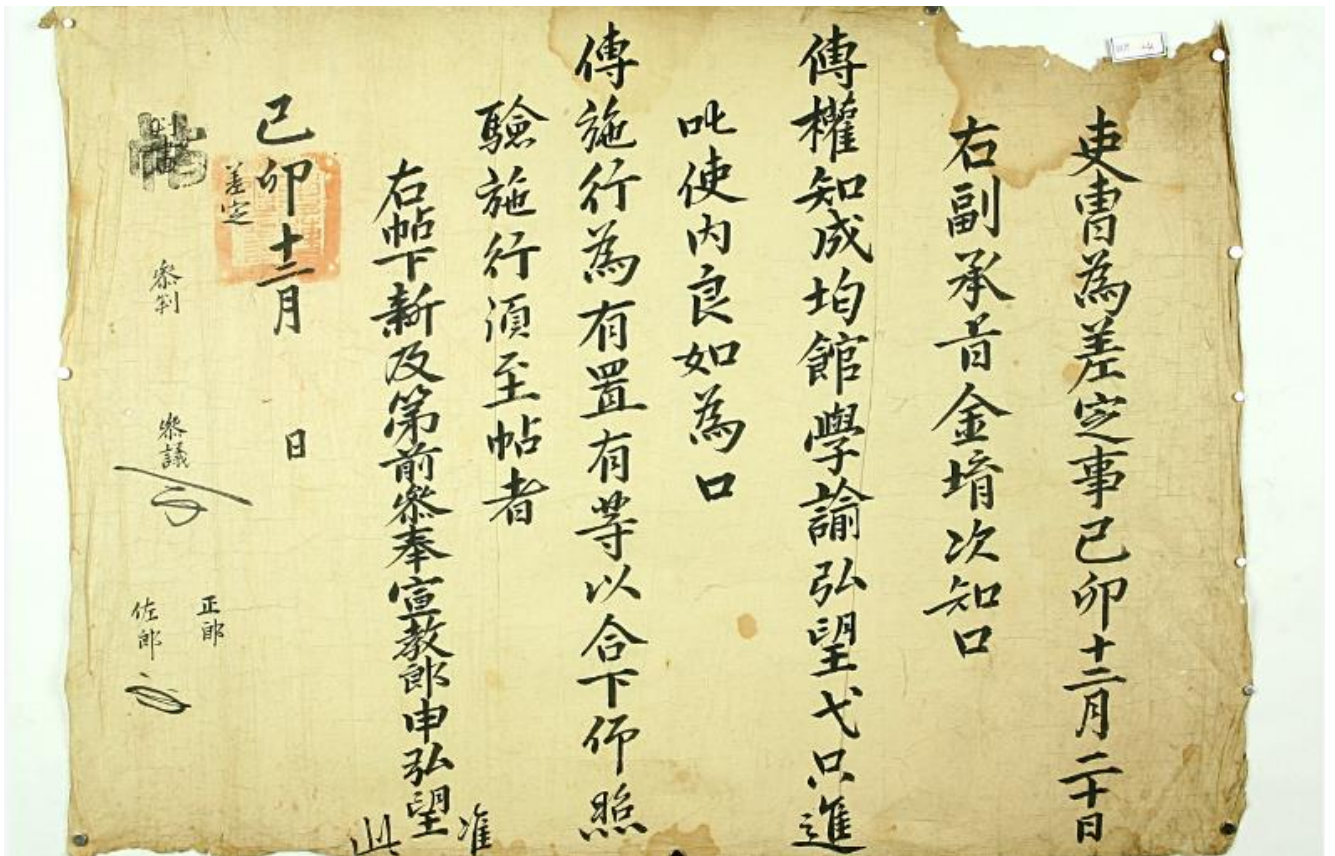 吏曹為差定事己卯十二月二十日
右副承旨金堉次知口
傳權知成均館學諭弘望弋只進
叱使内良如為口
傳施行為有置有等以合下仰照
驗施行須至帖者
右帖下新及第前叅奉宣教郎申弘望
准此
己卯十二月 日
差定
叅判
叅議
正郎
佐郎